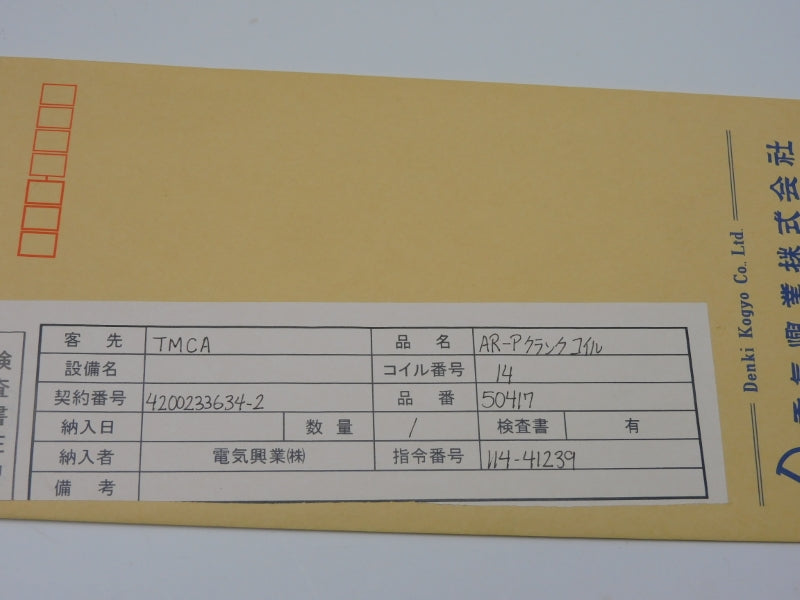 客 先 TMCA 品 名 AR-Pクランクコイル
設備名 コイル番号 14
契約番号 4200233634-2 品 番 50417
納入日 数 量 / 検査書 有
納入者 電気興業㈱ 指令番号 114-41239
備 考
検査書在中
Denki Kogyo Co., Ltd.
電気興業株式会社